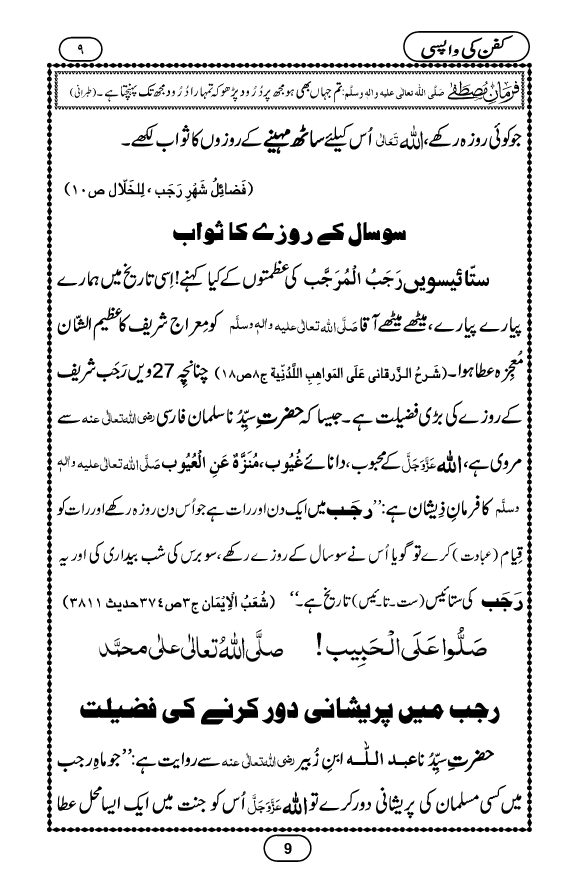 کفن کی واپسی
۹
فرمانِ مصطفےٰ صلَّی اللہ تعالٰی علیہ واٰلہٖ وسلَّم: تم جہاں بھی ہو مجھ پر دُرُود پڑھو کہ تمہارا دُرُود مجھ تک پہنچتا ہے۔ (طبرانی)
جو کوئی روزہ رکھے، اللہ تَعَالٰی اُس کیلئے ساٹھ مہینے کے روزوں کا ثواب لکھے۔
(فَضائِلُ شَهْرِ رَجَب ، لِلخَلّال ص۱۰)
سو سال کے روزے کا ثواب
ستّائیسویں رَجَبُ الْمُرَجَّب کی عظمتوں کے کیا کہنے! اِسی تاریخ میں ہمارے
پیارے پیارے، میٹھے میٹھے آقا صَلَّی اللہ تعالٰی علیہ واٰلہٖ وسلَّم کو مِعراج شریف کا عظیم الشّان
مُعجِزہ عطا ہوا۔ (شَرحُ الزَّرقانی عَلَی المَواهِبِ اللَّدُنِّیة ج۸ص۱۸) چنانچِہ 27 ویں رَجَب شریف
کے روزے کی بڑی فضیلت ہے۔ جیسا کہ حضرتِ سیِّدُنا سلمان فارسی رضی اللہ تعالٰی عنہ سے
مروی ہے، اللہ عَزَّوَجَلَّ کے محبوب، دانائے غُیُوب، مُنَزَّہٌ عَنِ الْعُیُوب صَلَّی اللہ تعالٰی علیہ واٰلہٖ
وسلَّم کا فرمانِ ذِیشان ہے: ’’رجَب میں ایک دن اور رات ہے جو اُس دن روزہ رکھے اور رات کو
قِیام (عبادت) کرے تو گویا اُس نے سو سال کے روزے رکھے، سو برس کی شب بیداری کی اور یہ
رَجَب کی ستائیس (ست۔تا۔ئیس) تاریخ ہے۔‘‘ (شُعَبُ الْاِیْمَان ج۳ص۳۷۴حدیث ۳۸۱۱)
صَلُّوا عَلَی الْحَبِیب! صلَّی اللہُ تعالٰی علٰی محمَّد
رجب میں پریشانی دور کرنے کی فضیلت
حضرتِ سیِّدُنا عبد اللّٰہ ابنِ زُبیر رضی اللہ تعالٰی عنہ سے روایت ہے: ’’جو ماہِ رجب
میں کسی مسلمان کی پریشانی دور کرے تو اللہ عَزَّوَجَلَّ اُس کو جنت میں ایک ایسا محل عطا
9